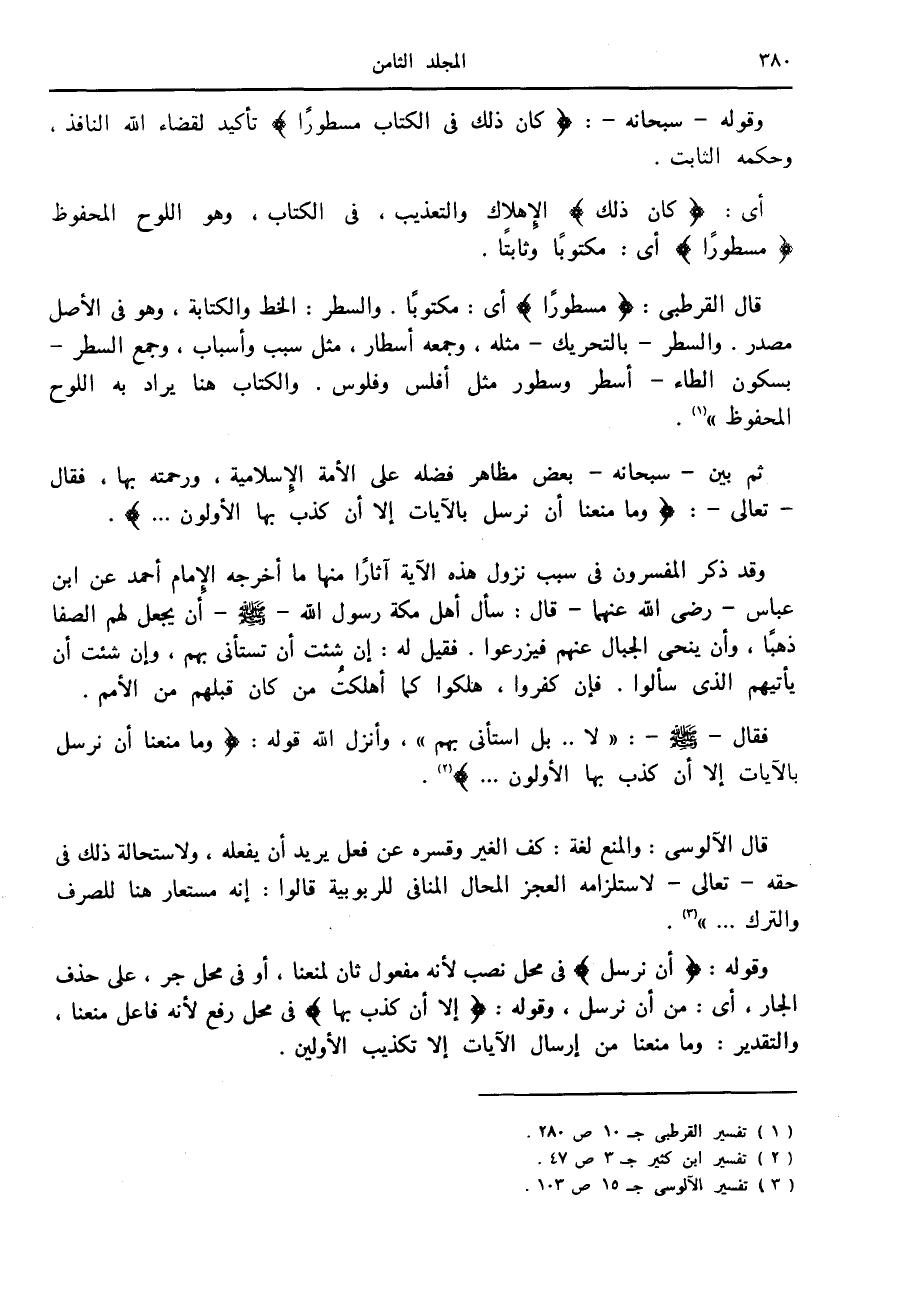 ٣٨٠ المجلد الثامن
وقوله – سبحانه – : ﴿ كان ذلك فى الكتاب مسطورًا ﴾ تأكيد لقضاء الله النافذ ،
وحكمه الثابت .
أى : ﴿ كان ذلك ﴾ الإهلاك والتعذيب ، فى الكتاب ، وهو اللوح المحفوظ
﴿ مسطورًا ﴾ أى : مكتوبًا وثابتًا .
قال القرطبى : ﴿ مسطورًا ﴾ أى : مكتوبًا . والسطر : الخط والكتابة ، وهو فى الأصل
مصدر . والسطر – بالتحريك – مثله ، وجمعه أسطار ، مثل سبب وأسباب ، وجمع السطر –
بسكون الطاء – أسطر وسطور مثل أفلس وفلوس . والكتاب هنا يراد به اللوح
المحفوظ »(١) .
ثم بين – سبحانه – بعض مظاهر فضله على الأمة الإسلامية ، ورحمته بها ، فقال
– تعالى – : ﴿ وما منعنا أن نرسل بالآيات إلا أن كذب بها الأولون ... ﴾ .
وقد ذكر المفسرون فى سبب نزول هذه الآية آثارًا منها ما أخرجه الإمام أحمد عن ابن
عباس – رضى الله عنهما – قال : سأل أهل مكة رسول الله – ﷺ – أن يجعل لهم الصفا
ذهبًا ، وأن ينحى الجبال عنهم فيزرعوا . فقيل له : إن شئت أن تستأنى بهم ، وإن شئت أن
يأتيهم الذى سألوا . فإن كفروا ، هلكوا كما أهلكتُ من كان قبلهم من الأمم .
فقال – ﷺ – : « لا .. بل استأنى بهم » ، وأنزل الله قوله : ﴿ وما منعنا أن نرسل
بالآيات إلا أن كذب بها الأولون ... ﴾(٢) .
قال الآلوسى : والمنع لغة : كف الغير وقسره عن فعل يريد أن يفعله ، ولاستحالة ذلك فى
حقه – تعالى – لاستلزامه العجز المحال المنافى للربوبية قالوا : إنه مستعار هنا للصرف
والترك ... »(٣) .
وقوله : ﴿ أن نرسل ﴾ فى محل نصب لأنه مفعول ثان لمنعنا ، أو فى محل جر ، على حذف
الجار ، أى : من أن نرسل ، وقوله : ﴿ إلا أن كذب بها ﴾ فى محل رفع لأنه فاعل منعنا ،
والتقدير : وما منعنا من إرسال الآيات إلا تكذيب الأولين .
( ١ ) تفسير القرطبى جـ ١٠ ص ٢٨٠ .
( ٢ ) تفسير ابن كثير جـ ٣ ص ٤٧ .
( ٣ ) تفسير الآلوسى جـ ١٥ ص ١٠٣ .